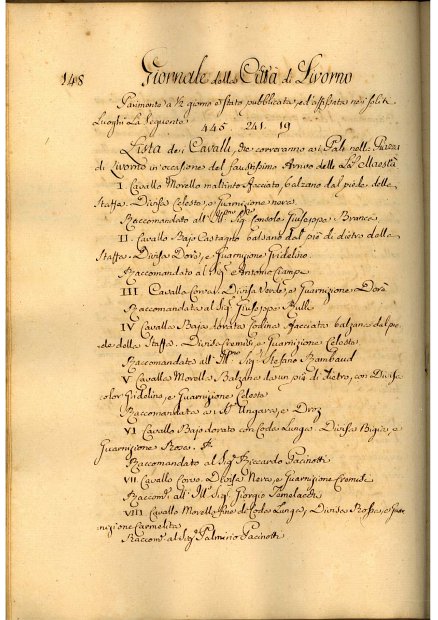 148 Giornale della Città di Livorno
Parimente a ½ giorno è stato pubblicata, ed affissata nei soliti
Luoghi La Seguente
445 241. 19
Lista dei Cavalli, che correranno ai Pali nella Piazza
di Livorno in occasione del faustissimo Arrivo delle Maestà
I. Cavallo Morello maltinto sfacciato, balzano dal piede della
Staffa. Divisa Celeste, e Guarnizione nera.
Raccomandato all' Sig. Console Giuseppe Branca
II. Cavallo Bajo Castagno balsano dal piè di dietro della
Staffa. Divisa Dorè, e Guarnizione Gridelino.
Raccomandato al Sig. Antonio Ciampi
III Cavalla Corva. Divisa Verde, e Guarnizione Dorà
Raccomandata al Sig. Giuseppe
IV Cavalla Baja dorata Codina sfacciata balzana dal pie-
de della Staffa. Divisa Cremisi, e Guarnizione Celesta
Raccomandata all' Ill.mo Sig. Stefano Rambaud
V Cavalla Morella Balzana da un piè di Dietro, con Divisa
color Gridelino, e Guarnizione Celesta
Raccomandata ai Ungara, e Droz
VI Cavallo Bajo dorato con Coda Lunga. Divisa Bigia, e
Guarnizione Rossa.
Raccomandato al Sig. Riccardo Pacinotti
VII Cavallo Corvo. Divisa Nera, e Guarnizione Cremisi
Raccom. all' Ill. Sig. Giorgio
VIII Cavallo Morello fino da Coda Lunga, Divisa Rossa, e Guar-
nizione Carmelita
Raccom. al Sig. Palmerio Pacinotti